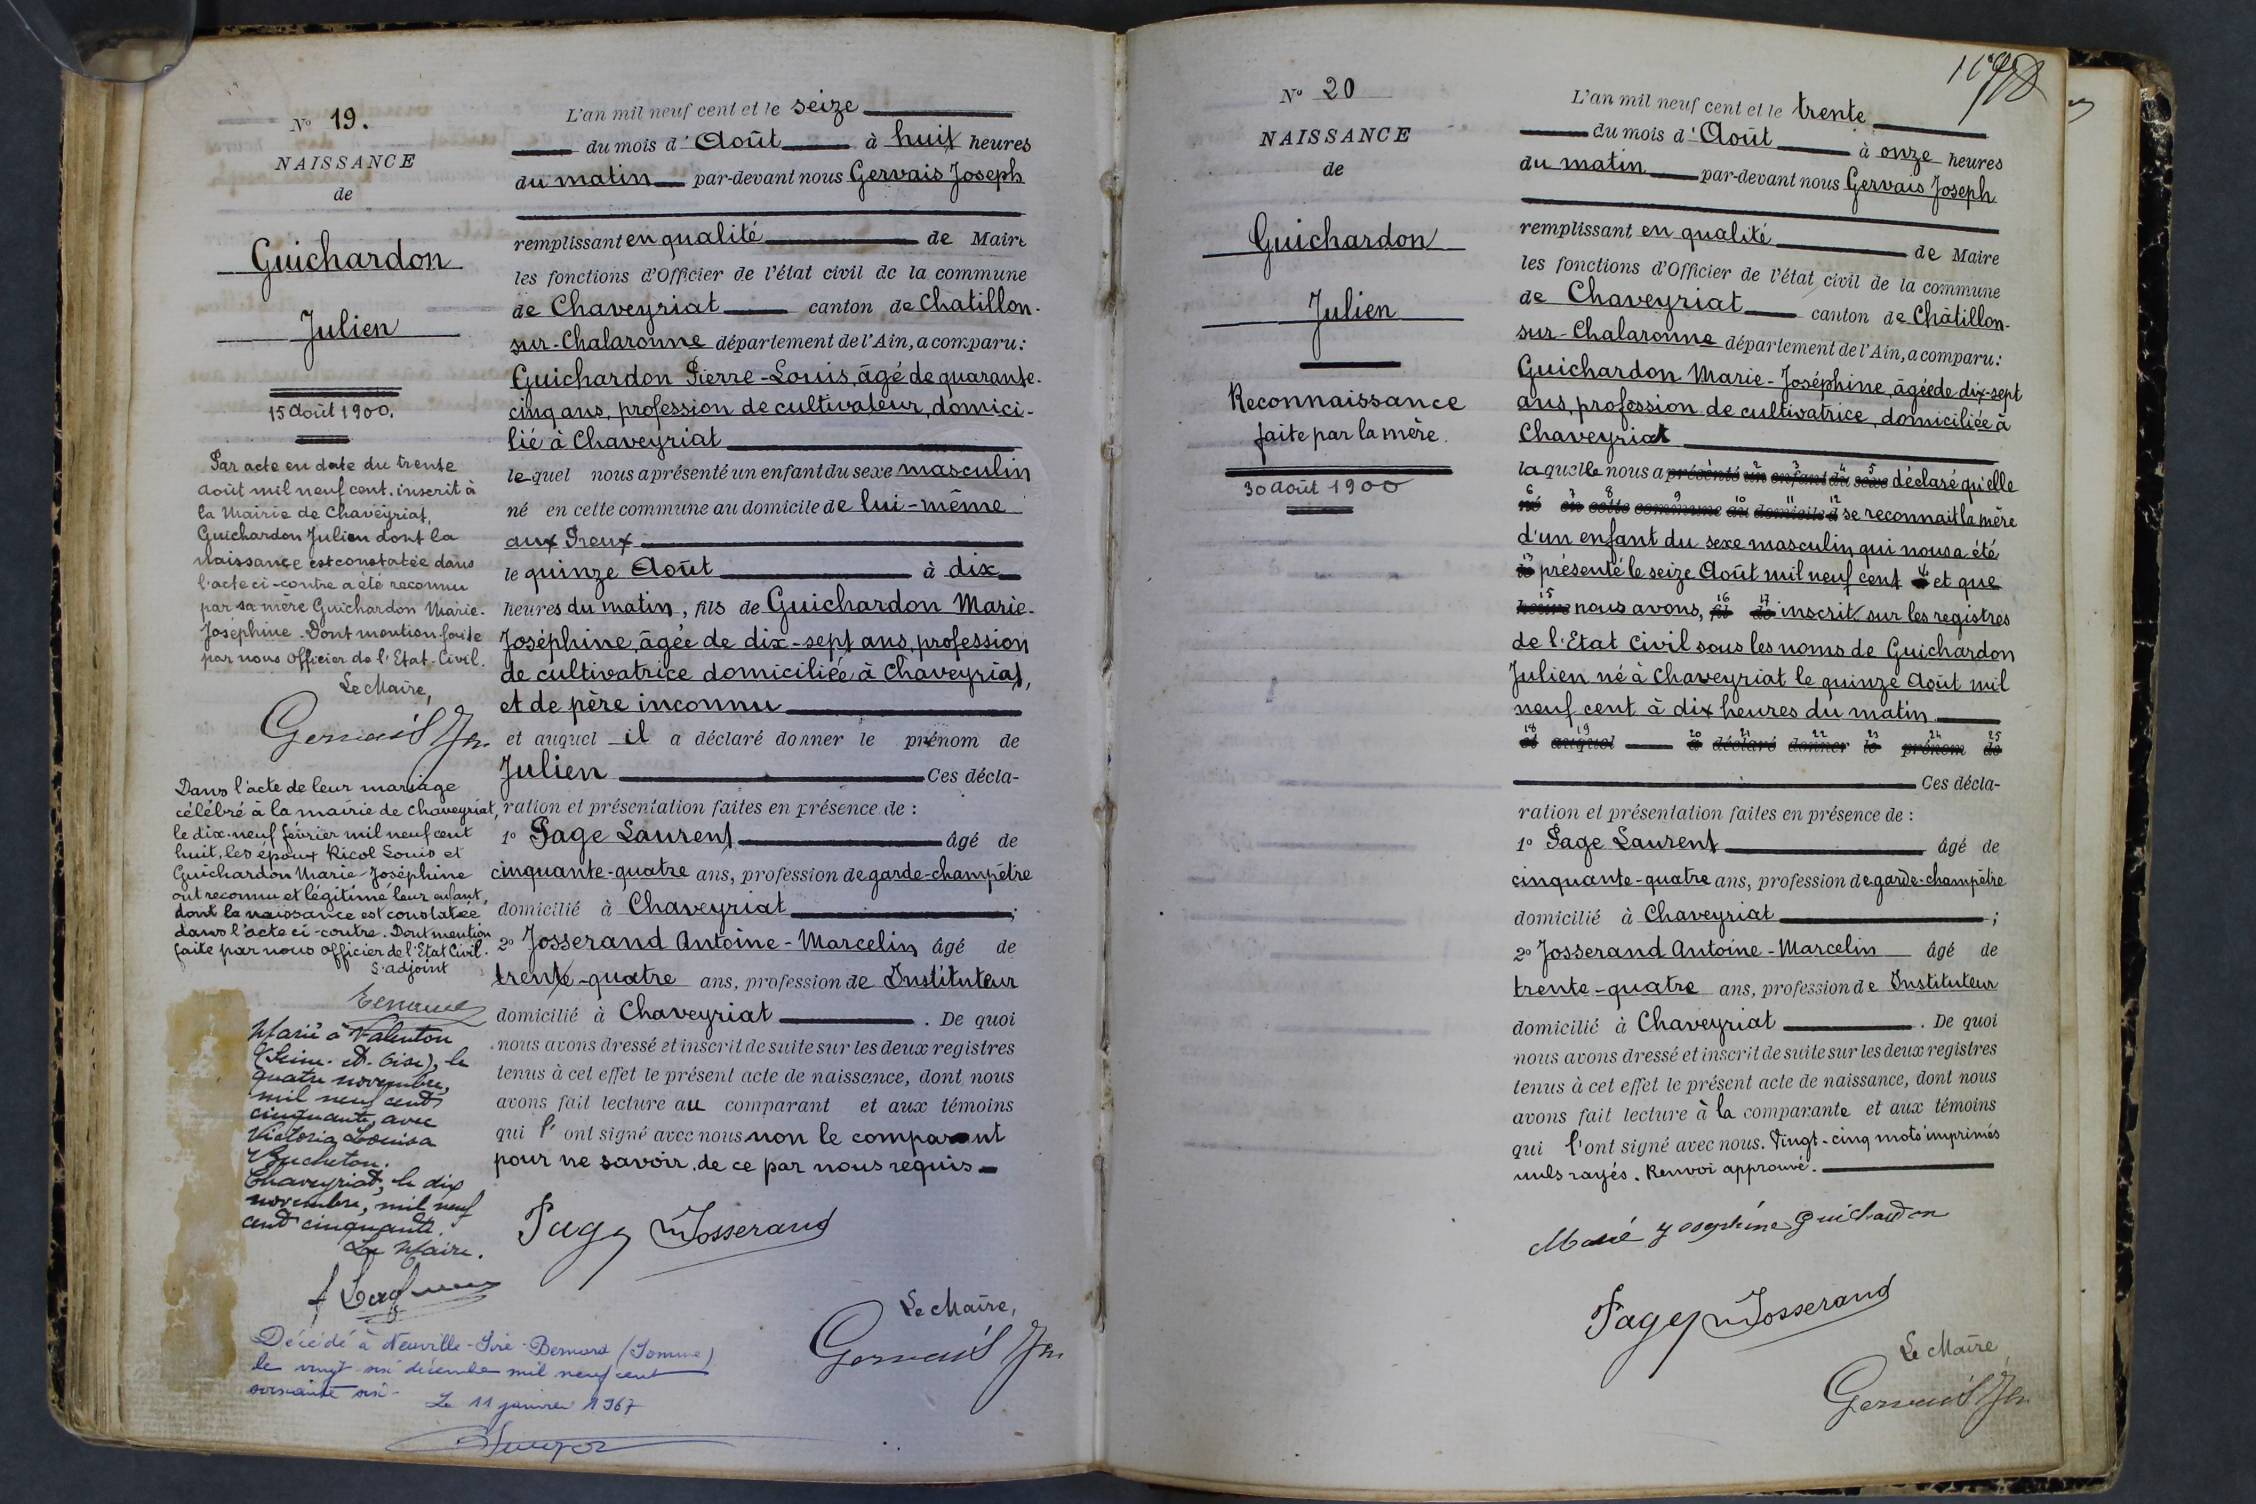 N° 19.
NAISSANCE
de
Guichardon
Julien
15 Août 1900.
Par acte en date du trente
Août mil neuf cent. inscrit à
la Mairie de Chaveyriat,
Guichardon Julien dont la
naissance est constatée dans
l'acte ci-contre a été reconnu
par sa mère Guichardon Marie-
Joséphine. Dont mention faite
par nous Officier de l'Etat-Civil.
Le Maire,
Gervais Jh.
Dans l'acte de leur mariage
célébré à la mairie de Chaveyriat,
le dix-neuf février mil neuf cent
huit, les époux Ricol Louis et
Guichardon Marie-Joséphine
ont reconnu et légitimé leur enfant,
dont la naissance est constatée
dans l'acte ci-contre. Dont mention
faite par nous Officier de l'Etat Civil.
L'adjoint
Marié à Valenton
(Seine-et-Oise), le
quatre novembre,
mil neuf cent
cinquante, avec
Victoria Louisa
Chaveyriat, le dix
novembre, mil neuf
cent cinquante.
Le Maire.
Décédé à Neuville-Sire-Bernard (Somme)
le vingt six décembre mil neuf cent
soixante six-
Le 11 janvier 1967
L'an mil neuf cent et le seize
du mois d'Août à huit heures
du matin par-devant nous Gervais Joseph
remplissant en qualité de Maire
les fonctions d'Officier de l'état civil de la commune
de Chaveyriat canton de Chatillon-
sur-Chalaronne département de l'Ain, a comparu:
Guichardon Pierre-Louis, âgé de quarante-
cinq ans, profession de cultivateur, domici-
lié à Chaveyriat
lequel nous a présenté un enfant du sexe masculin
né en cette commune au domicile de lui-même
aux Preux
le quinze Août à dix
heures du matin, fils de Guichardon Marie-
Joséphine, âgée de dix-sept ans, profession
de cultivatrice domiciliée à Chaveyriat,
et de père inconnu
et auquel il a déclaré donner le prénom de
Julien Ces décla-
ration et présentation faites en présence de :
1° Page Laurent âgé de
cinquante-quatre ans, profession de garde-champêtre
domicilié à Chaveyriat ;
2° Josserand Antoine-Marcelin âgé de
trente-quatre ans, profession de Instituteur
domicilié à Chaveyriat . De quoi
nous avons dressé et inscrit de suite sur les deux registres
tenus à cet effet le présent acte de naissance, dont nous
avons fait lecture au comparant et aux témoins
qui l'ont signé avec nous non le comparant
pour ne savoir, de ce par nous requis
Page Josserand
Le Maire,
Gervais Jh.
N° 20
NAISSANCE
de
Guichardon
Julien
Reconnaissance
faite par la mère.
30 Août 1900
L'an mil neuf cent et le trente
du mois d'Août à onze heures
du matin par-devant nous Gervais Joseph
remplissant en qualité de Maire
les fonctions d'Officier de l'état civil de la commune
de Chaveyriat canton de Châtillon-
sur-Chalaronne département de l'Ain, a comparu:
Guichardon Marie-Joséphine, âgée de dix-sept
ans, profession de cultivatrice, domiciliée à
Chaveyriat
laquelle nous a présenté un enfant du sexe déclaré qu'elle
né en cette commune au domicile d se reconnait la mère
d'un enfant du sexe masculin qui nous a été
le présenté le seize Août mil neuf cent à et que
heures nous avons, fil de inscrit sur les registres
de l'Etat Civil sous les noms de Guichardon
Julien né à Chaveyriat le quinze Août mil
neuf cent à dix heures du matin
et auquel a déclaré donner le prénom de
Ces décla-
ration et présentation faites en présence de :
1° Page Laurent âgé de
cinquante-quatre ans, profession de garde-champêtre
domicilié à Chaveyriat ;
2° Josserand Antoine-Marcelin âgé de
trente-quatre ans, profession de Instituteur
domicilié à Chaveyriat . De quoi
nous avons dressé et inscrit de suite sur les deux registres
tenus à cet effet le présent acte de naissance, dont nous
avons fait lecture à la comparante et aux témoins
qui l'ont signé avec nous. Vingt-cinq mots imprimés
nuls rayés. Renvoi approuvé.
Marie Josephine Guichardon
Page Josserand
Le Maire,
Gervais Jh.